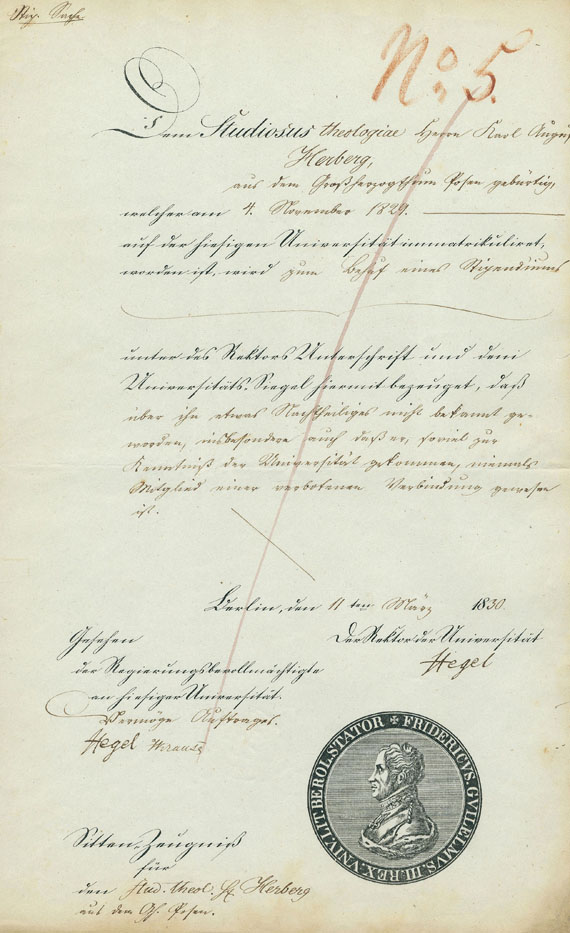 Stip. Sache
No. 5.
Dem Studiosus theologiae Herrn Karl Augus
Herberg,
aus dem Großherzogthum Posen gebürtig,
welcher am 4. November 1829.
auf der hiesigen Universität immatrikuliret,
worden ist, wird zum Behuf eines Stipendiums
unter des Rektors Unterschrift und dem
Universitäts-Siegel hiermit bezeuget, daß
über ihn etwas Nachtheiliges nicht bekannt ge-
worden, insbesondere auch daß er, soviel zur
Kenntniß der Universität gekommen, niemals
Mitglied einer verbotenen Verbindung gewesen
ist.
Berlin, den 11ten März 1830.
Gesehen
der Regierungsbevollmächtigte
an hiesiger Universität.
Vermöge Auftrages.
Hegel Krause
Der Rektor der Universität
Hegel
FRIDERICVS.GVILELMVS.III.REX.VNIV.LIT.BEROL.STATOR
Sitten-Zeugniß
für
den stud. theol. H. Herberg
aus dem Gh. Posen.